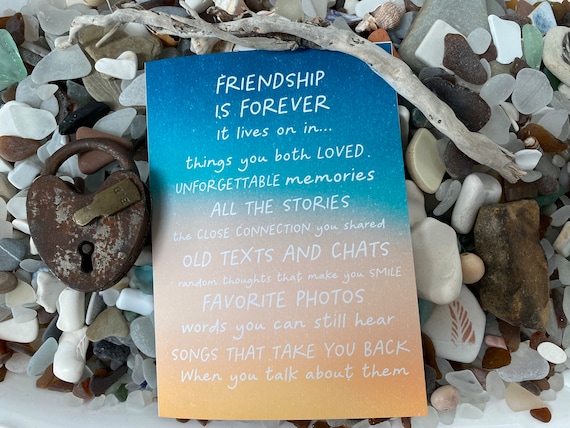 FRIENDSHIP
IS FOREVER
It lives on in...
things you both LOVED.
UNFORGETTABLE memories
ALL THE STORIES
the CLOSE CONNECTION you shared
OLD TEXTS AND CHATS
random thoughts that make you SMILE
FAVORITE PHOTOS
words you can still hear
SONGS THAT TAKE YOU BACK
When you talk about them